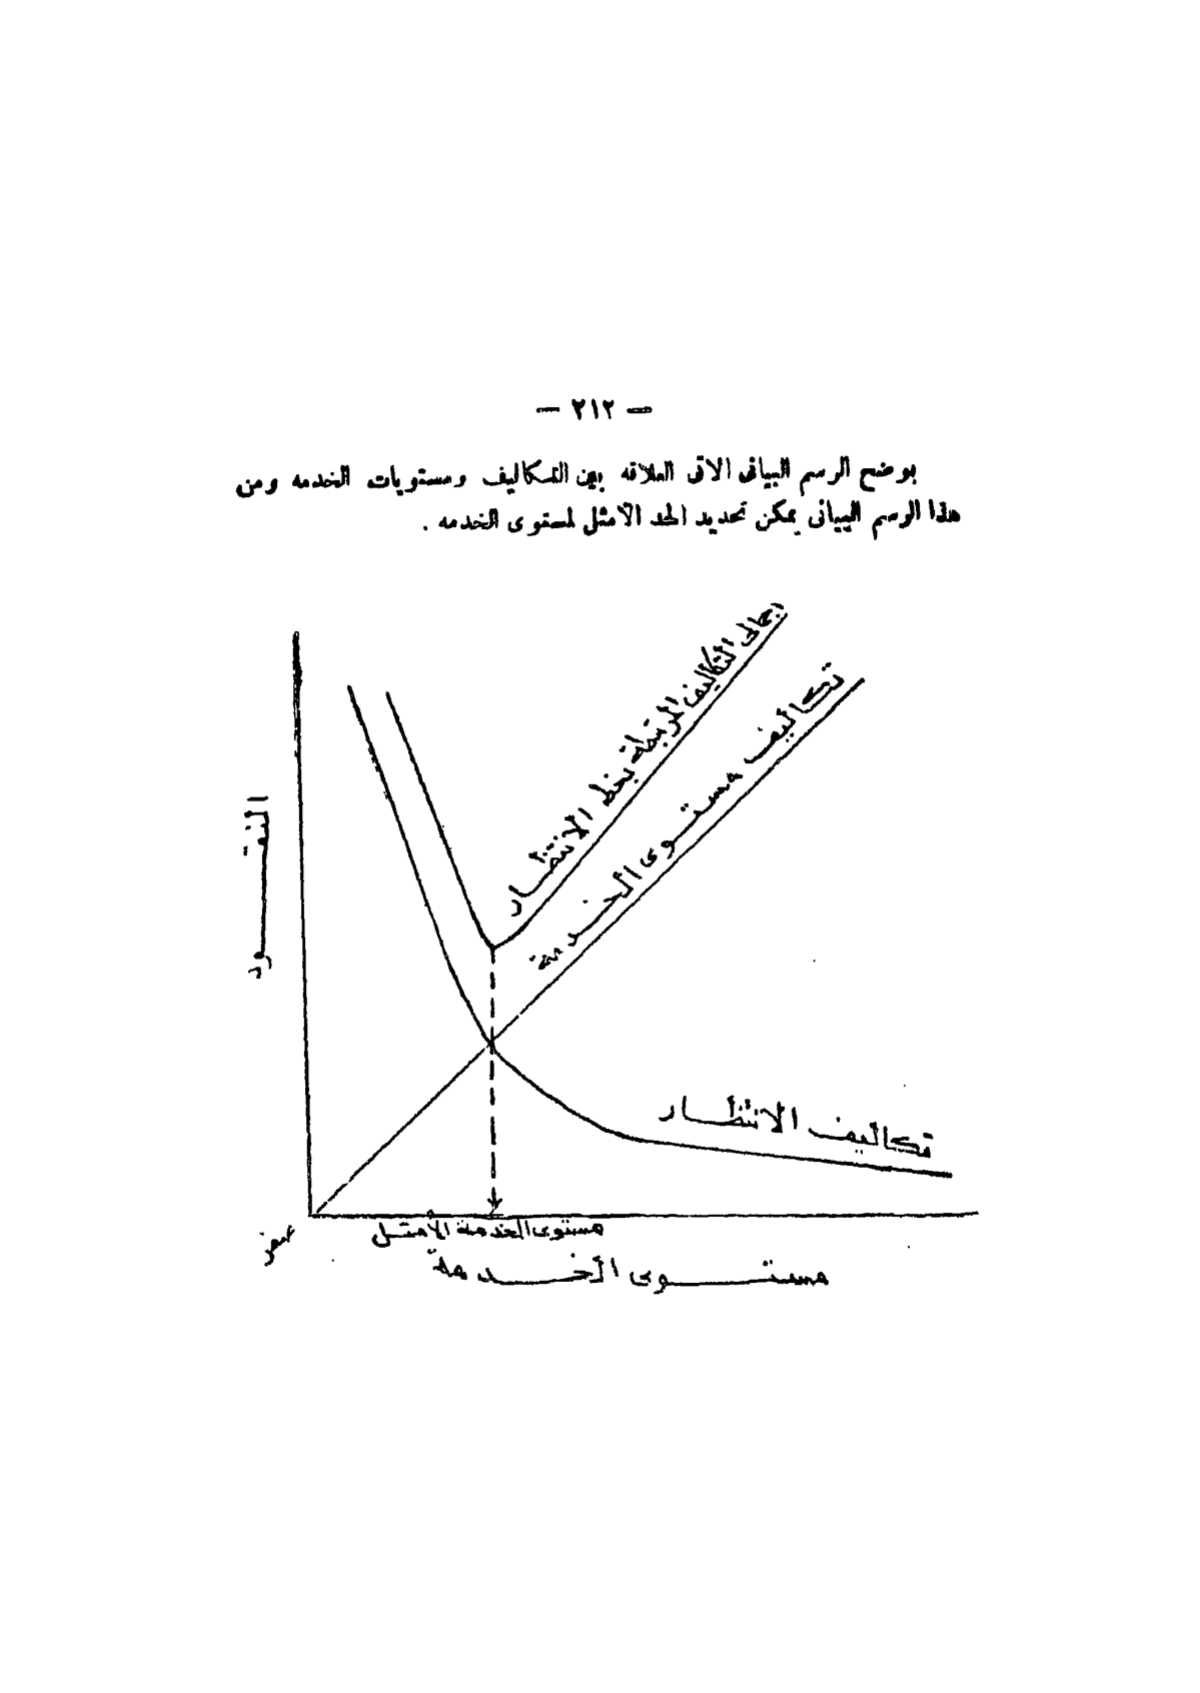 — ٢١٢ —
يوضح الرسم البيانى الاتى العلاقه بين التكاليف ومستويات الخدمه ومن
هذا الرسم البيانى يمكن تحديد الحد الامثل لمستوى الخدمه .
اجمالى التكاليف المرتبطة بخط الانتظار
تكاليف مستوى الخدمة
النقود
تكاليف الانتظار
صفر
مستوى الخدمة الأمثل
مستوى الخدمة